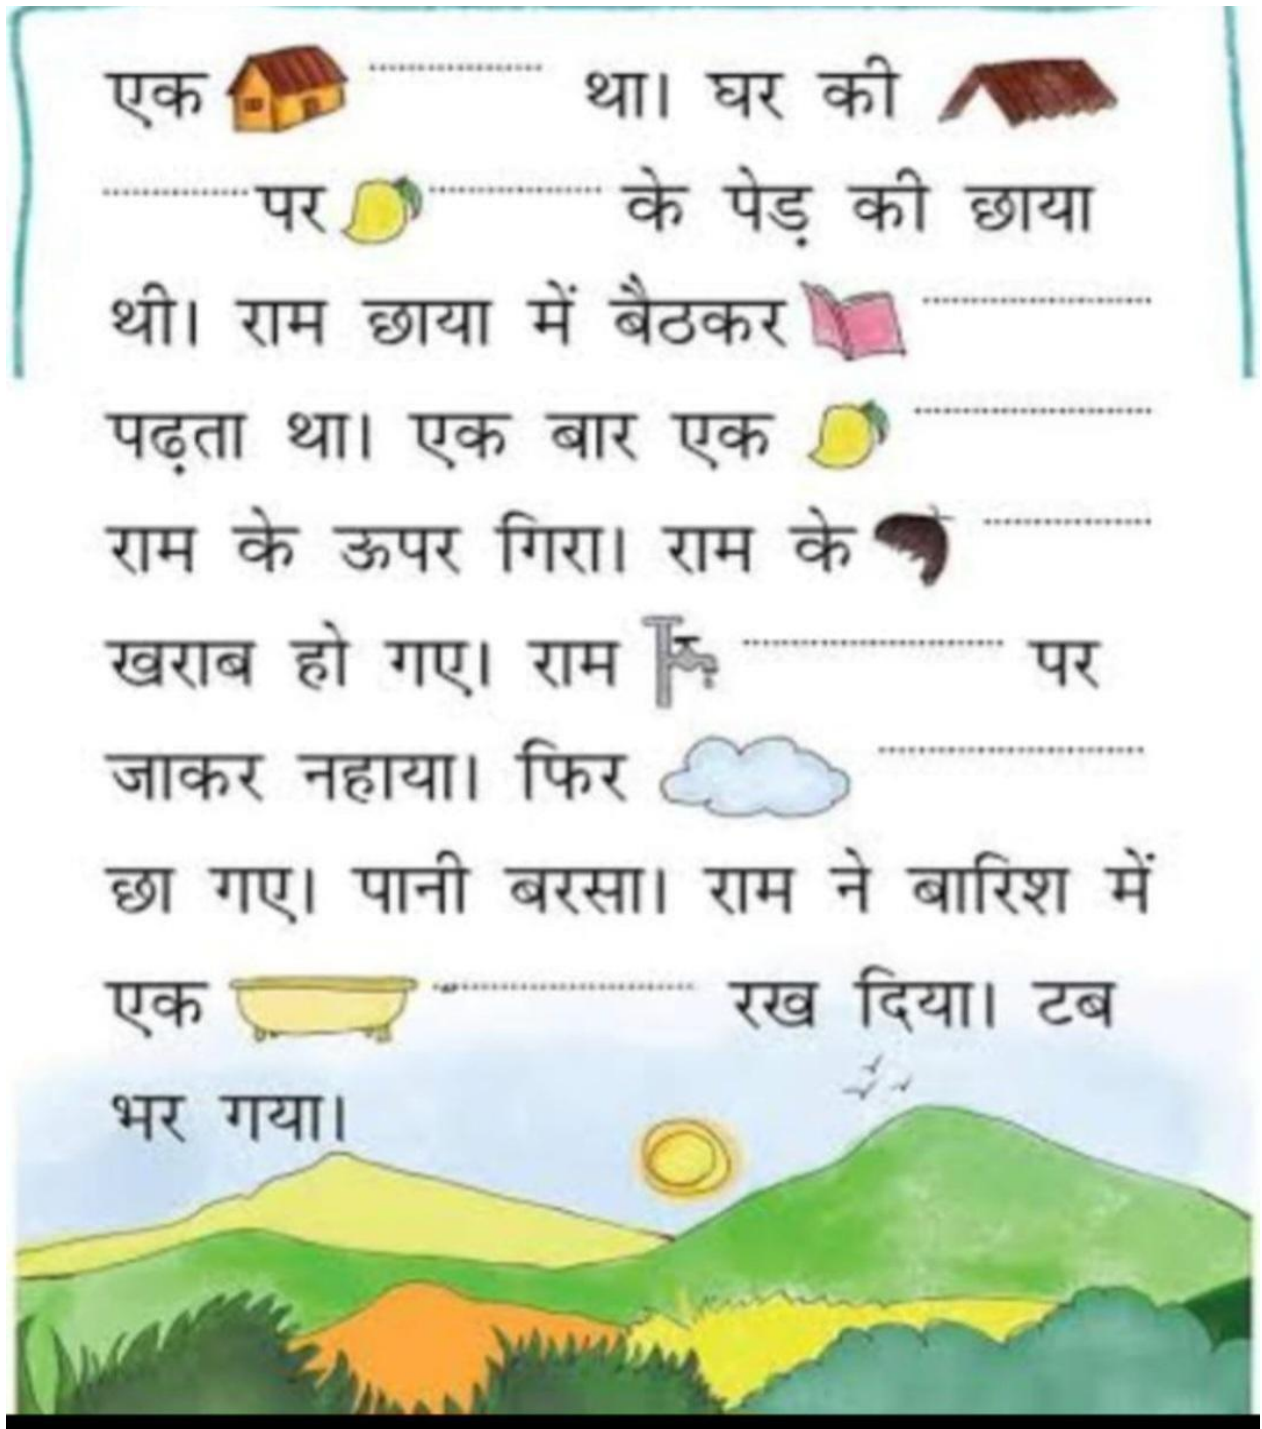 एक ................ था। घर की
............... पर ................ के पेड़ की छाया
थी। राम छाया में बैठकर ......................
पढ़ता था। एक बार एक ......................
राम के ऊपर गिरा। राम के ................
खराब हो गए। राम ........................ पर
जाकर नहाया। फिर ........................
छा गए। पानी बरसा। राम ने बारिश में
एक ........................ रख दिया। टब
भर गया।